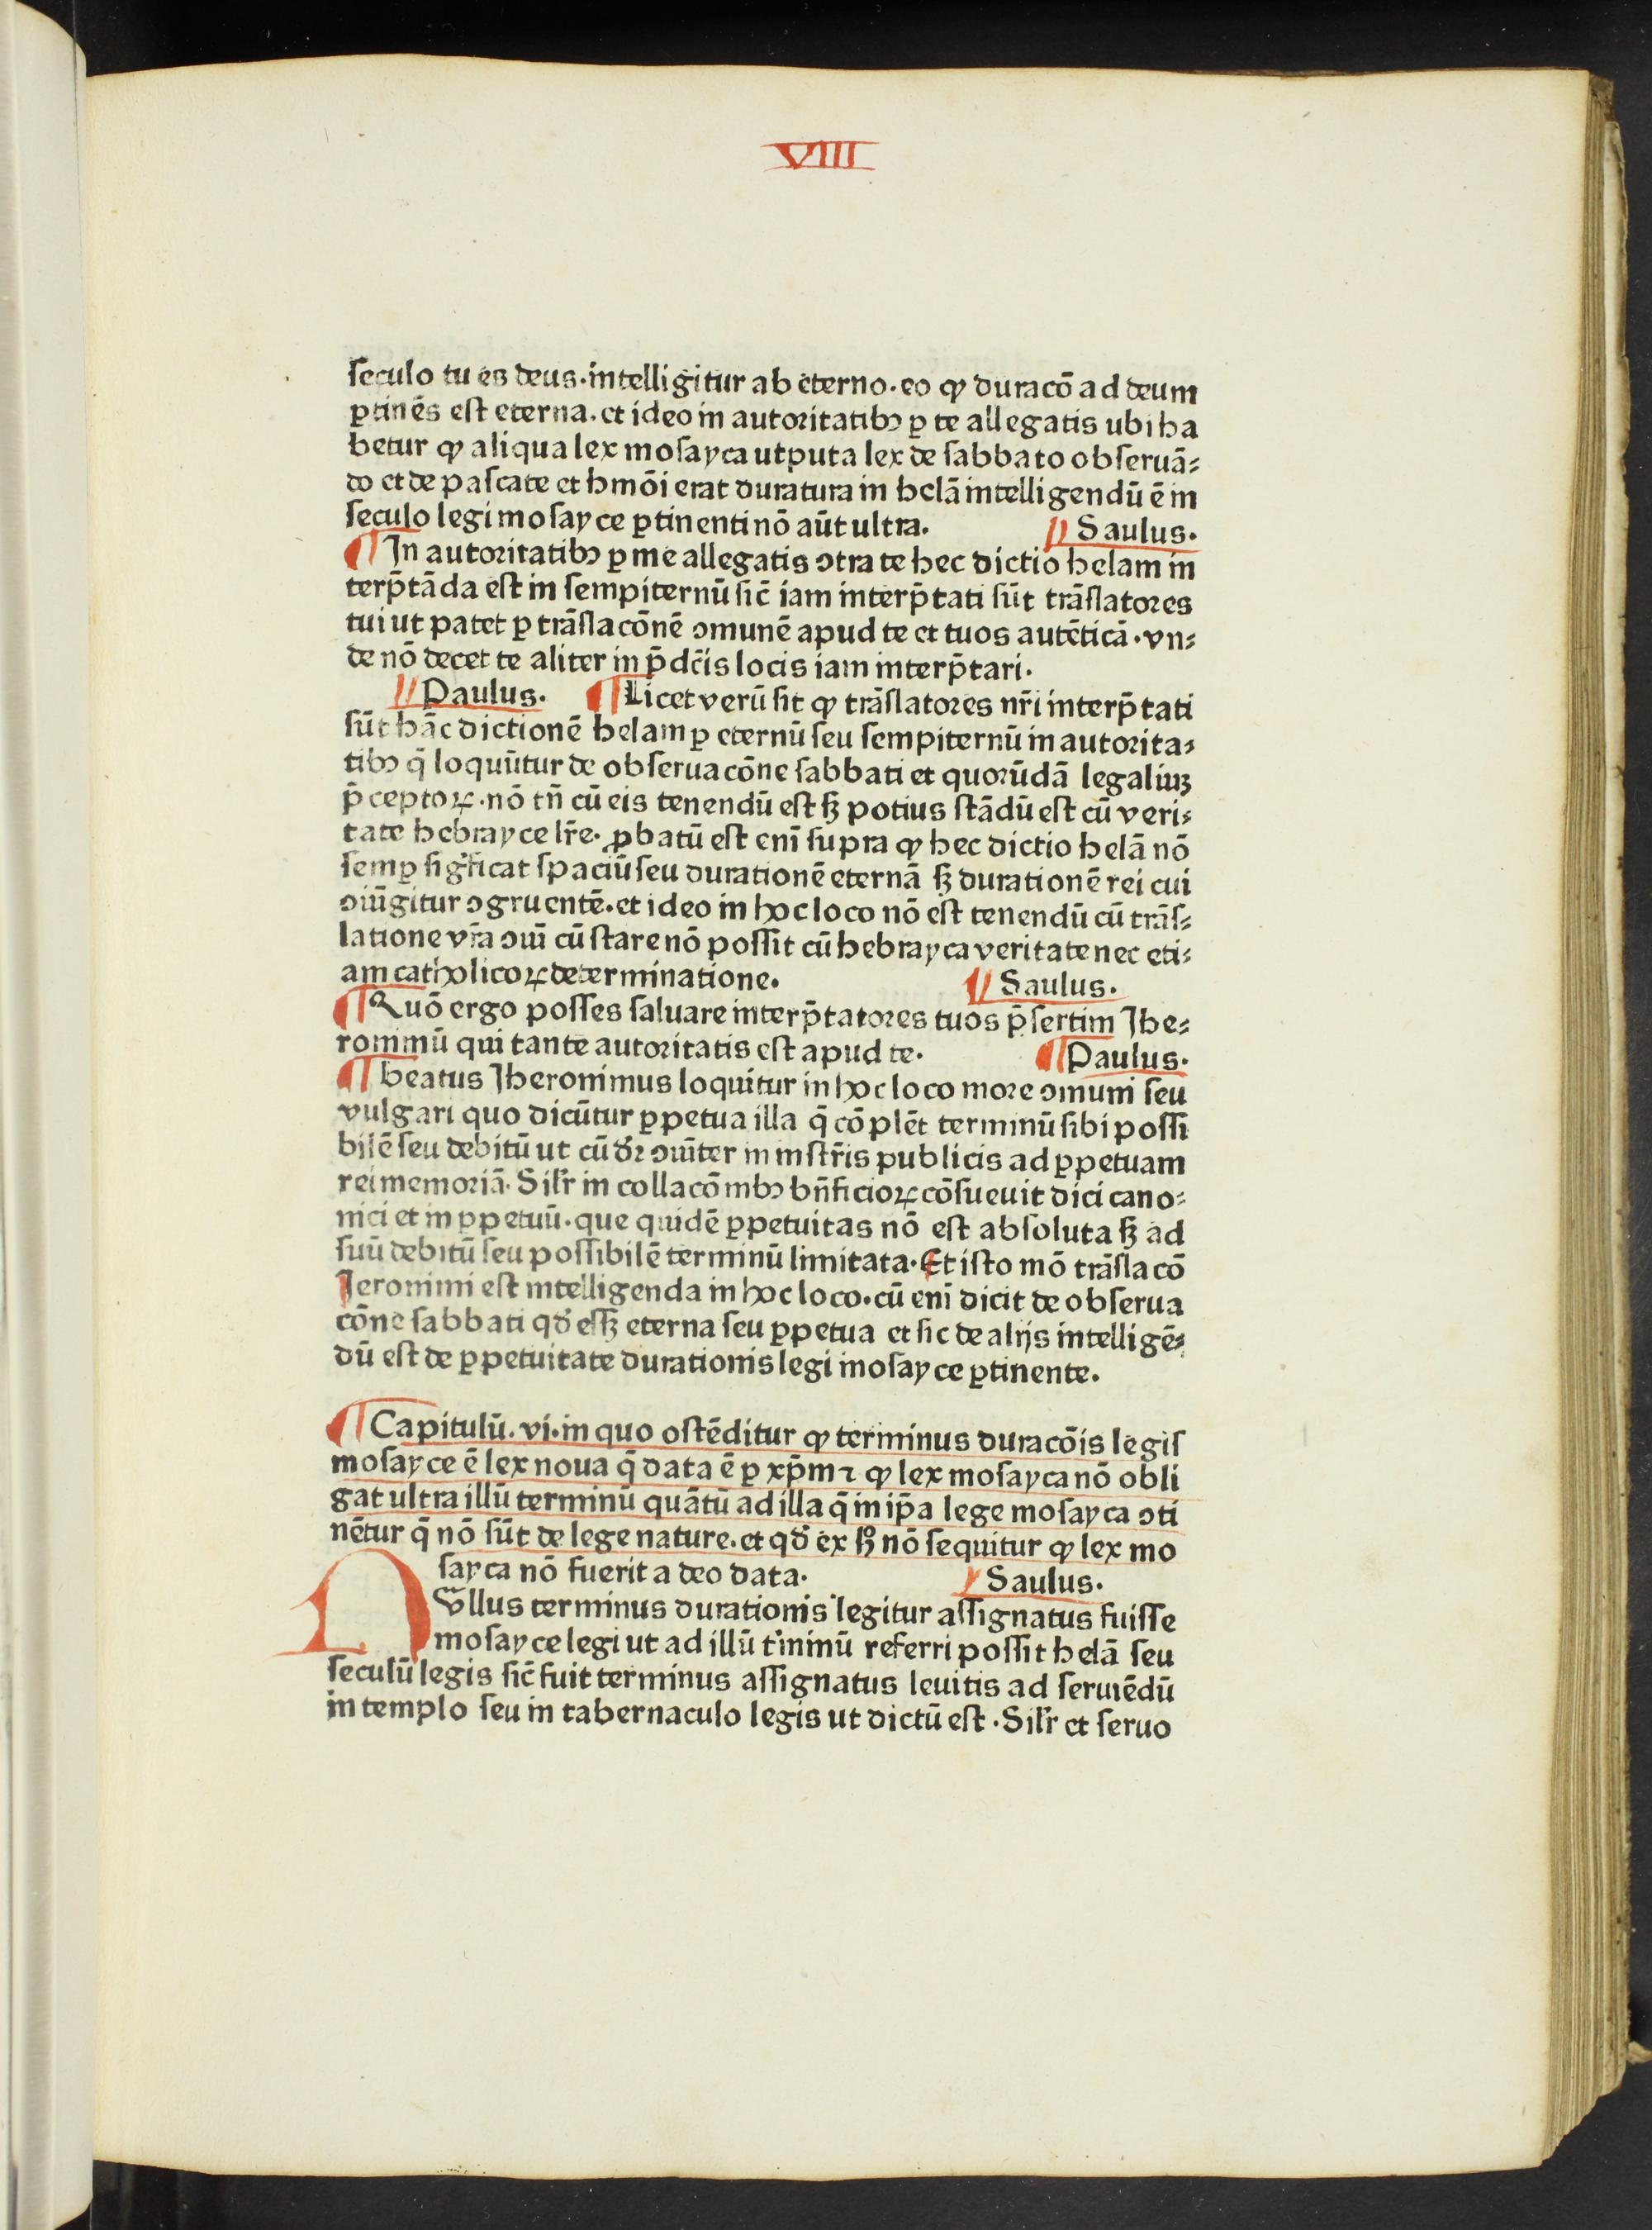 VIII
ſeculo tu es deus·intelligitur ab eterno·eo ꝙ duracō ad deum
ꝑtinēs eſt eterna·et ideo in autoritatibꝰ ꝑ te allegatis ubi ha
betur ꝙ aliqua lex moſayca utputa lex de ſabbato obſeruā⸗
do et de paſcate et hmōi erat duratura in helā intelligendū ē in
ſeculo legi moſayce ꝑtinenti nō aūt ultra. Saulus·
¶ In autoritatibꝰ ꝑ me allegatis ↄtra te hec dictio helam in
terp̄tāda eſt in ſempiternū ſic̄ iam interp̄tati ſūt trāſlatores
tui ut patet ꝑ trāſlacōnē ↄmunē apud te et tuos autēticā·vn⸗
de nō decet te aliter in p̄dc̄is locis iam interp̄tari·
Paulus· ¶ Licet verū ſit ꝙ trāſlatores nr̄i interp̄tati
ſūt hāc dictionē helam ꝑ eternū ſeu ſempiternū in autorita⸗
tibꝰ q̄ loquūtur de obſeruacōne ſabbati et quorūdā legaliuꝫ
p̄ceptoꝝ·nō tn̄ cū eis tenendū eſt ſꝫ potius ſtādū eſt cū veri⸗
tate hebrayce lr̄e·ꝓbatū eſt enī ſupra ꝙ hec dictio helā nō
ſemꝑ ſigficat ſpaciū ſeu durationē eternā ſꝫ durationē rei cui
ↄiūgitur ↄgruentē·et ideo in hoc loco nō eſt tenendū cū trāſ⸗
latione vr̄a ↄuī cū ſtare nō poſſit cū hebrayca veritate nec eti⸗
am catholicoꝝ determinatione. Saulus·
¶ Quō ergo poſſes ſaluare interp̄tatores tuos p̄ſertim Jhe⸗
ronimū qui tante autoritatis eſt apud te· ¶ Paulus·
¶ beatus Jheronimus loquitur in hoc loco more ↄmuni ſeu
vulgari quo dicūtur ꝑpetua illa q̄ cōplēt terminū ſibi poſſi
bilē ſeu debitū ut cū dr̄ ↄuīter in inſtr̄is publicis ad ꝑpetuam
rei memoriā·Silr̄ in collacōnibꝰ bn̄ficioꝝ cōſueuit dici cano⸗
nici et in ꝑpetuū·que quidē ꝑpetuitas nō eſt abſoluta ſꝫ ad
ſuū debitū ſeu poſſibilē terminū limitata·Et iſto mō trāſlacō
Jeronimi eſt intelligenda in hoc loco·cū enī dicit de obſerua
cōne ſabbati qd̓ eſſꝫ eterna ſeu ꝑpetua et ſic de alijs intelligē⸗
dū eſt de ꝑpetuitate durationis legi moſayce ꝑtinente.
¶ Capitulū·vi·in quo oſtēditur ꝙ terminus duracōis legiſ
moſayce ē lex noua q̄ data ē ꝑ xp̄m ⁊ ꝙ lex moſayca nō obli
gat ultra illū terminū quātū ad illa q̄ in ip̄a lege moſayca ↄti
nētur q̄ nō ſūt de lege nature·et qd̓ ex ħ nō ſequitur ꝙ lex mo
ſayca nō fuerit a deo data· Saulus.
Nvllus terminus durationis legitur aſſignatus fuiſſe
moſayce legi ut ad illū t̓minū referri poſſit helā ſeu
ſeculū legis ſic̄ fuit terminus aſſignatus leuitis ad ſeruiēdū
in templo ſeu in tabernaculo legis ut dictū eſt·Silr̄ et ſeruo